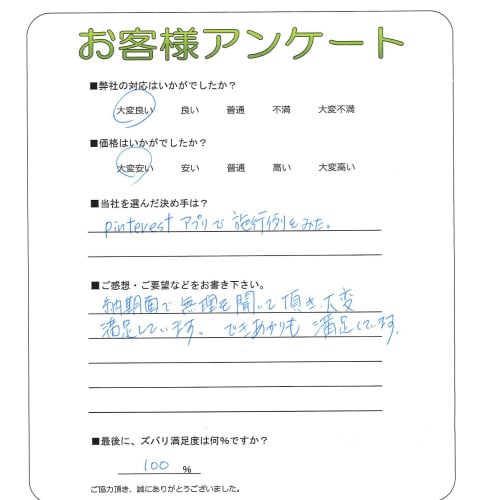 お客様アンケート
■弊社の対応はいかがでしたか？
大変良い 良い 普通 不満 大変不満
■価格はいかがでしたか？
大変安い 安い 普通 高い 大変高い
■当社を選んだ決め手は？
pinterest アプリで施行例をみた。
■ご感想・ご要望などをお書き下さい。
納期面で無理を聞いて頂き大変
満足しています、できあがりも満足しています.
■最後に、ズバリ満足度は何％ですか？
100 ％
ご協力頂き、誠にありがとうございました。